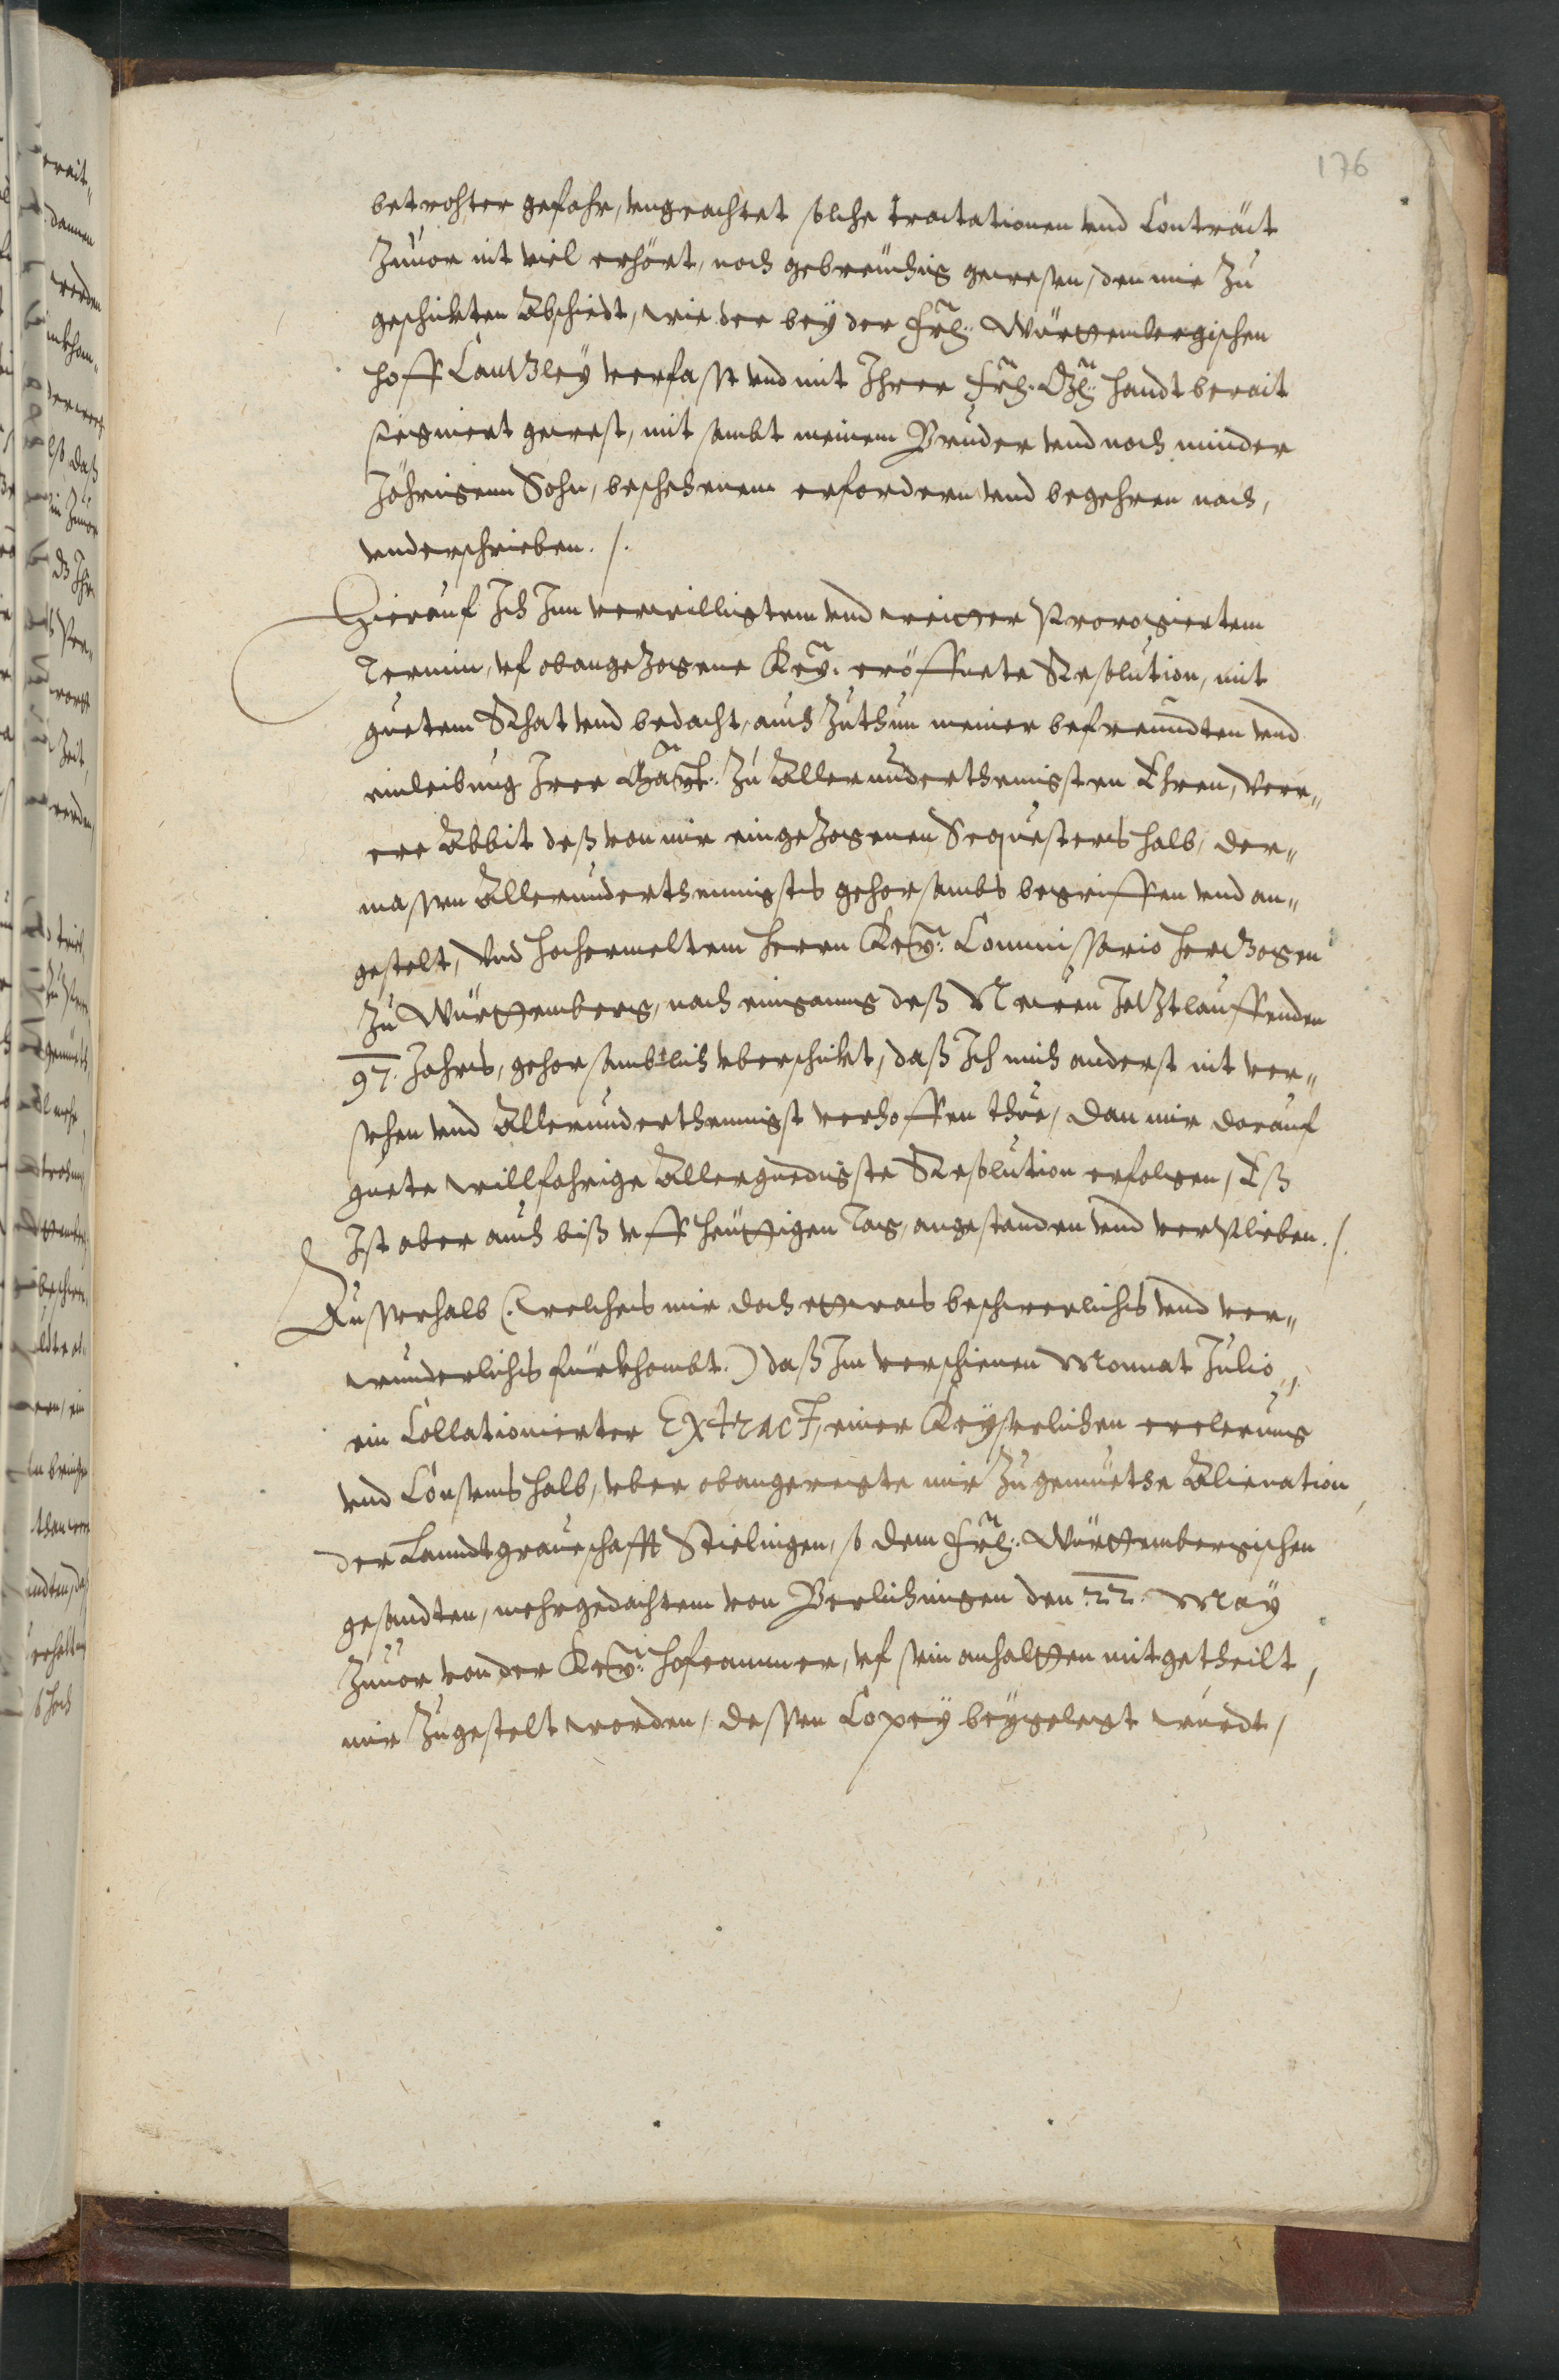 176
betrohter gefahr, vngeachtet solche tractationen vnd Contract
Zuuor nit viel erhört, noch gebreuchig gewesen, den mir Zu
geschickten Abschiedt, wie der bey der Frl. Württembergischen
Hoff Cantzley verfasst vnd mit Ihrer Frl. Gl. handt berait
signiert gewest, mit sambt meinem Bruder vnd noch minder
Jöhrigenn Sohn, beschehenem erfordern vnd begehren nach,
vnderschrieben. /.
Hierauf Ich Inn verwilligtem vnd weitter Prorogiertem
Termin, vf obangezogene Key. eröffnete Resolution, mit
guetem Rhat vnd bedacht, auch Zuthun meiner befreundten vnd
einleibung Irer May.t Zu Allerunderthenigsten Ehren, verr„
ere Abbit deß von mir eingezogenen Sequesters halb, der„
massen Allerunderthennigsts gehorsambs begriffen vnd an„
gestelt, Vnd hochermeltem Herrn Key. Commissario Hertzogen
Zu Württemberg, nach einganng deß Newen Jetztlauffenden
97. Jahrs, gehorsamblich vberschickt, daß Ich mich anderst nit ver„
sehen vnd Allerunderthennigst verhoffen thue, dan mir darauf
guete willfahrige Allergnedigste Resolution erfolgen, Eß
Ist aber auch biß vff heuttigen Tag, angestanden vnd verplieben. /.
Ausserhalb (: welches mir doch ettwas beschwerlichs vnd ver„
wunderlichs fürkhombt.) daß Im verschienen Monnat Julio„
ein Collationierter Extract, einer Keyserlichen erclerung
vnd Consens halb, vber obangeregte mir Zugemuetse Alienation,
der Lanndtgraueschafft Stielingen, so dem Frl. Württembergischen
gesandten, mehrgedachtem von Berlichingen den 22. May
Zuuor von der Key. Hofcammer, vf sein anhaltten mitgetheilt,
mir Zugestelt worden, dessen Copey beygelegt wurdt,